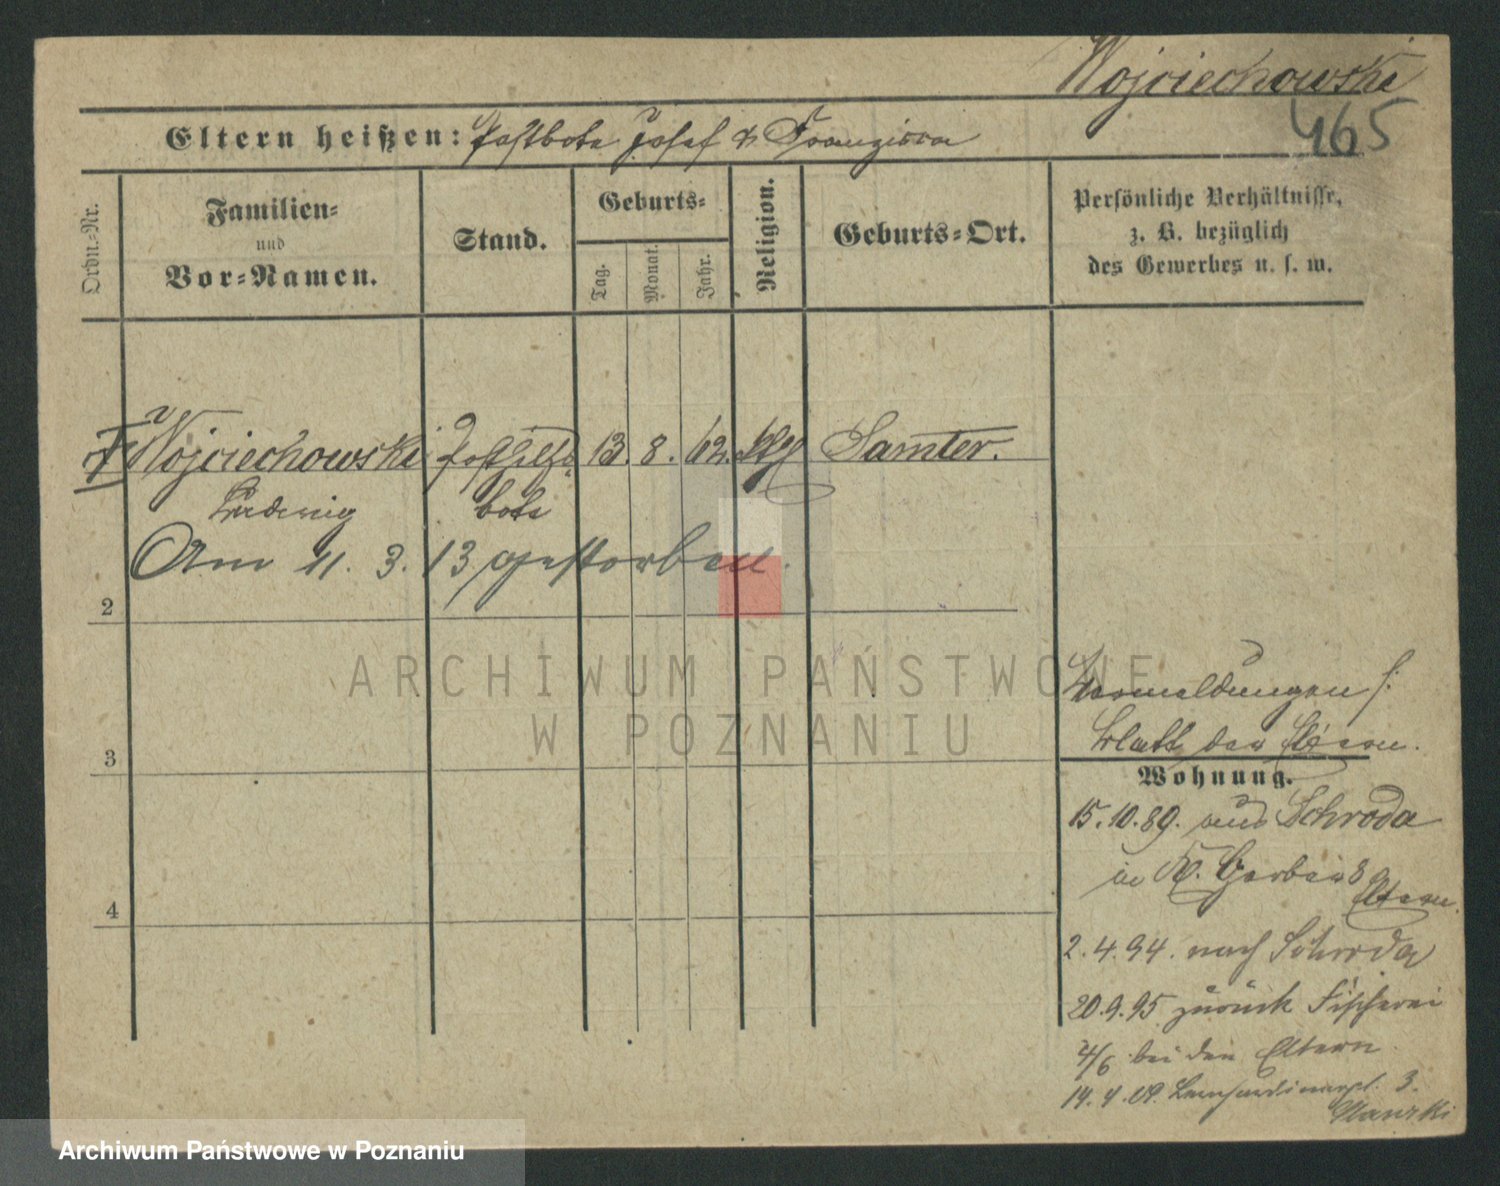 Wojciechowski
465
Eltern heißen: Postbote Josef & Franziska
Ordn.-Nr.
Familien-
und
Vor-Namen.
Stand.
Geburts-
Tag.
Monat.
Jahr.
Religion.
Geburts-Ort.
Persönliche Verhältnisse,
z. B. bezüglich
des Gewerbes u. s. w.
Wojciechowski Posthilfs 13. 8. 62. kth Samter.
Ludwig bote
Am 11. 3. 13 gestorben.
2
3
4
ARCHIWUM PAŃSTWOWE
W POZNANIU
Vermeldungen s.
Blatt der Eltern.
Wohnung.
15.10.89. aus Schroda
in Kl. Gerber 8 a
Eltern.
2.4.94. nach Schroda
20.9.95 zurück Fischerei
4/6 bei den Eltern.
14.4.09. Bernhardinerpl. 3.
Archiwum Państwowe w Poznaniu